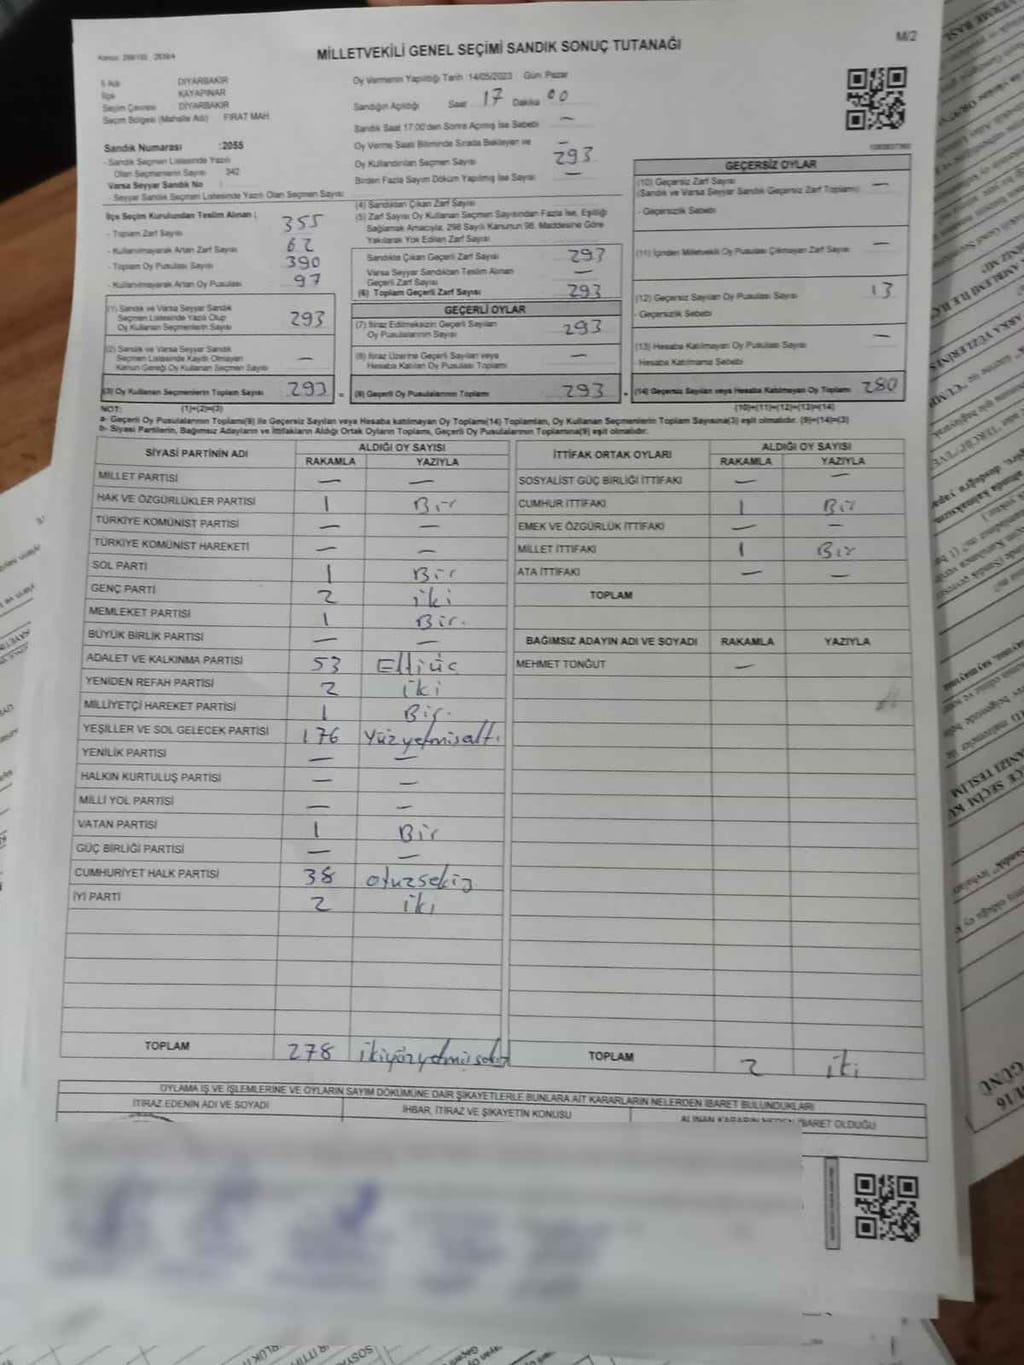 M/2
MİLLETVEKİLİ GENEL SEÇİMİ SANDIK SONUÇ TUTANAĞI
DİYARBAKIR
İlçe KAYAPINAR
Seçim Çevresi DİYARBAKIR
Seçim Bölgesi (Mahalle Adı) FIRAT MAH
Sandık Numarası :2055
- Sandık Seçmen Listesinde Yazılı
Olan Seçmenlerin Sayısı 342
Varsa Seyyar Sandık No
- Seyyar Sandık Seçmen Listesinde Yazılı Olan Seçmen Sayısı
Oy Vermenin Yapıldığı Tarih :14/05/2023 Gün Pazar
Sandığın Açıldığı Saat 17 Dakika 00
Sandık Saat 17:00'den Sonra Açılmış İse Sebebi —
Oy Verme Saati Bitiminde Sırada Bekleyen ve
Oy Kullandırılan Seçmen Sayısı 293
Birden Fazla Sayım Döküm Yapılmış İse Sayısı —
İlçe Seçim Kurulundan Teslim Alınan :
- Toplam Zarf Sayısı 355
- Kullanılmayarak Artan Zarf Sayısı 62
- Toplam Oy Pusulası Sayısı 390
- Kullanılmayarak Artan Oy Pusulası 97
(1) Sandık ve Varsa Seyyar Sandık
Seçmen Listesinde Yazılı Olup
Oy Kullanan Seçmenlerin Sayısı 293
(2) Sandık ve Varsa Seyyar Sandık
Seçmen Listesinde Kaydı Olmayan
Kanun Gereği Oy Kullanan Seçmen Sayısı —
(3) Oy Kullanan Seçmenlerin Toplam Sayısı 293 =
(4) Sandıktan Çıkan Zarf Sayısı
(5) Zarf Sayısı Oy Kullanan Seçmen Sayısından Fazla İse, Eşitliği
Sağlamak Amacıyla, 298 Sayılı Kanunun 98. Maddesine Göre
Yakılarak Yok Edilen Zarf Sayısı
Sandıkta Çıkan Geçerli Zarf Sayısı 293
Varsa Seyyar Sandıktan Teslim Alınan
Geçerli Zarf Sayısı —
(6) Toplam Geçerli Zarf Sayısı 293
GEÇERLİ OYLAR
(7) İtiraz Edilmeksizin Geçerli Sayılan
Oy Pusulalarının Sayısı 293
(8) İtiraz Üzerine Geçerli Sayılan veya
Hesaba Katılan Oy Pusulası Toplamı —
(9) Geçerli Oy Pusulalarının Toplamı 293
GEÇERSİZ OYLAR
(10) Geçersiz Zarf Sayısı
(Sandık ve Varsa Seyyar Sandık Geçersiz Zarf Toplamı) —
- Geçersizlik Sebebi
(11) İçinden Milletvekili Oy Pusulası Çıkmayan Zarf Sayısı —
(12) Geçersiz Sayılan Oy Pusulası Sayısı 13
- Geçersizlik Sebebi
(13) Hesaba Katılmayan Oy Pusulası Sayısı —
- Hesaba Katılmama Sebebi
(14) Geçersiz Sayılan veya Hesaba Katılmayan Oy Toplamı 280
NOT: (1)+(2)=(3) (10)+(11)+(12)+(13)=(14)
a- Geçerli Oy Pusulalarının Toplamı(9) ile Geçersiz Sayılan veya Hesaba katılmayan Oy Toplamı(14) Toplamları, Oy Kullanan Seçmenlerin Toplam Sayısına(3) eşit olmalıdır. (9)+(14)=(3)
b- Siyasi Partilerin, Bağımsız Adayların ve İttifakların Aldığı Ortak Oyların Toplamı, Geçerli Oy Pusulalarının Toplamına(9) eşit olmalıdır.
SİYASİ PARTİNİN ADI ALDIĞI OY SAYISI
RAKAMLA YAZIYLA
MİLLET PARTİSİ — —
HAK VE ÖZGÜRLÜKLER PARTİSİ 1 Bir
TÜRKİYE KOMÜNİST PARTİSİ — —
TÜRKİYE KOMÜNİST HAREKETİ — —
SOL PARTİ 1 Bir
GENÇ PARTİ 2 iki
MEMLEKET PARTİSİ 1 Bir.
BÜYÜK BİRLİK PARTİSİ — —
ADALET VE KALKINMA PARTİSİ 53 Elliüç
YENİDEN REFAH PARTİSİ 2 iki
MİLLİYETÇİ HAREKET PARTİSİ 1 Bir.
YEŞİLLER VE SOL GELECEK PARTİSİ 176 Yüzyetmişaltı
YENİLİK PARTİSİ — —
HALKIN KURTULUŞ PARTİSİ — —
MİLLİ YOL PARTİSİ — —
VATAN PARTİSİ 1 Bir
GÜÇ BİRLİĞİ PARTİSİ — —
CUMHURİYET HALK PARTİSİ 38 otuzsekiz
İYİ PARTİ 2 iki
TOPLAM 278 ikiyüzyetmişsekiz
İTTİFAK ORTAK OYLARI ALDIĞI OY SAYISI
RAKAMLA YAZIYLA
SOSYALİST GÜÇ BİRLİĞİ İTTİFAKI — —
CUMHUR İTTİFAKI 1 Bir
EMEK VE ÖZGÜRLÜK İTTİFAKI — —
MİLLET İTTİFAKI 1 Bir
ATA İTTİFAKI — —
TOPLAM
BAĞIMSIZ ADAYIN ADI VE SOYADI RAKAMLA YAZIYLA
MEHMET TONĞUT —
TOPLAM 2 iki
OYLAMA İŞ VE İŞLEMLERİNE VE OYLARIN SAYIM DÖKÜMÜNE DAİR ŞİKAYETLERLE BUNLARA AİT KARARLARIN NELERDEN İBARET BULUNDUKLARI
İTİRAZ EDENİN ADI VE SOYADI İHBAR, İTİRAZ VE ŞİKAYETİN KONUSU ALINAN KARARIN NEDEN İBARET OLDUĞU